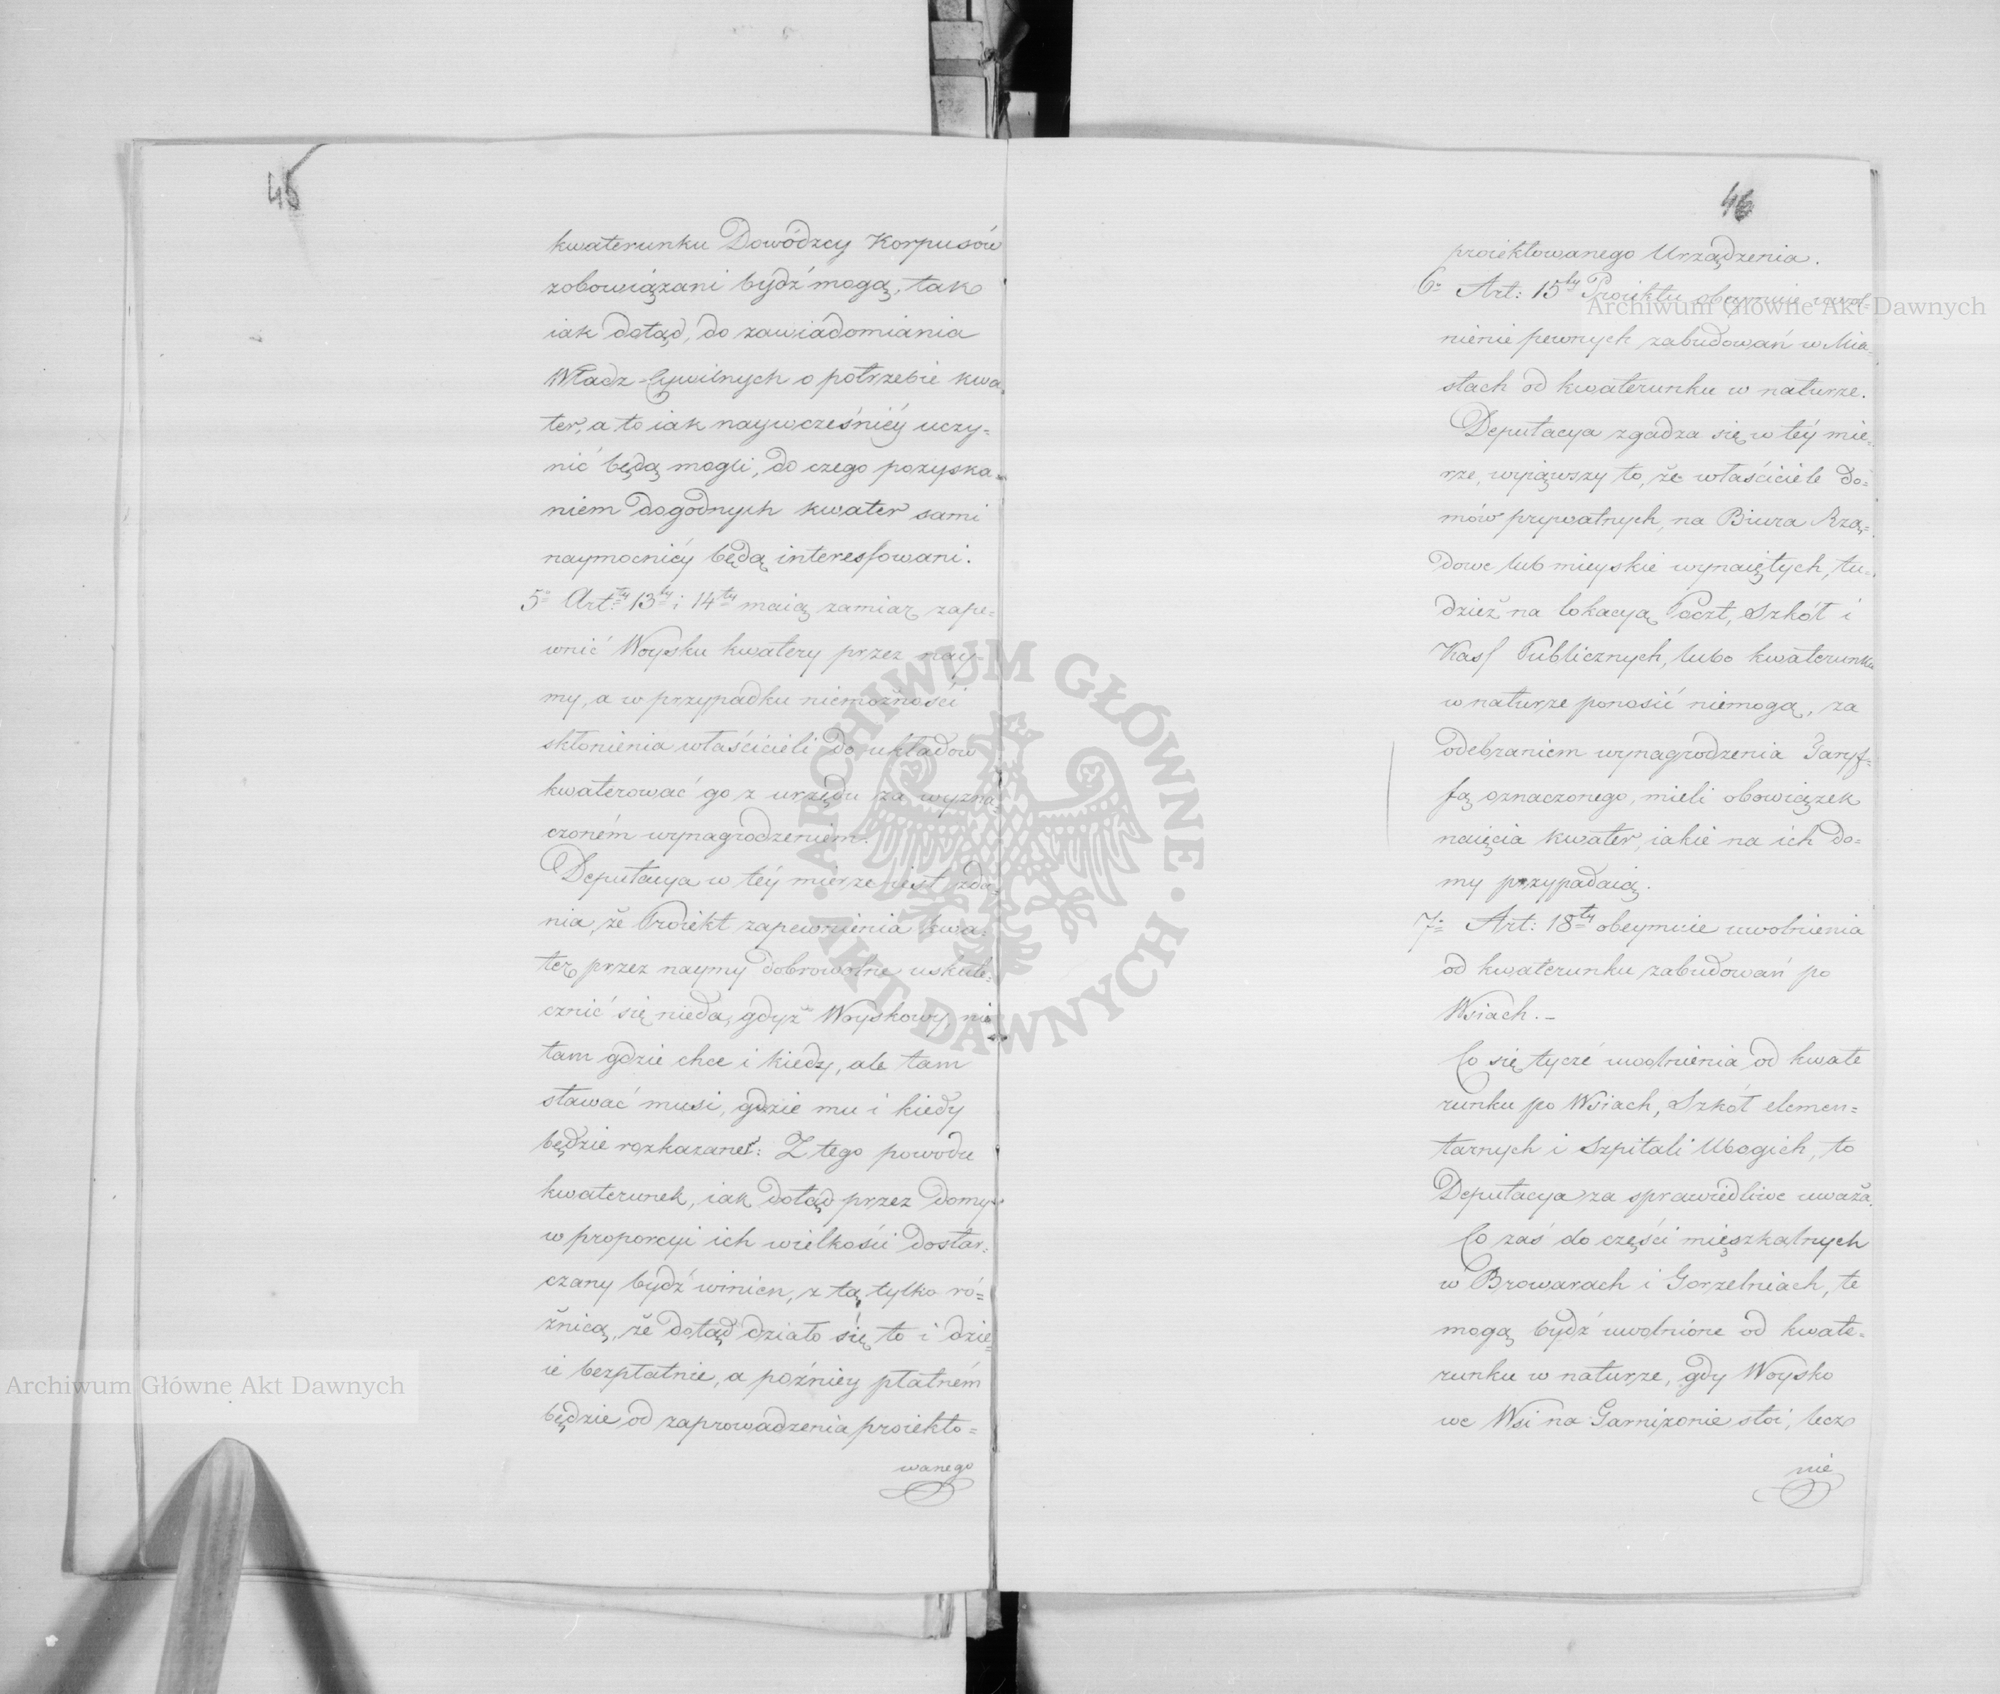 45
kwaterunku Dowódzcy Korpusów
zobowiązani bydź mogą, tak
iak dotąd, do zawiadomiania
Władz Cywilnych o potrzebie kwa-
ter, a to iak naywcześniéy uczy-
nić będą mogli, do czego pozyska-
niem dogodnych kwater sami
naymocniéy będą interessowani.
5o Artty 13ty i 14ty maią zamiar zape-
wnić Woysku kwatery przez nay-
my, a w przypadku niemożności
skłonienia właścicieli do układów
kwaterować go z urzędu za wyzna-
czoném wynagrodzeniem.
Deputacya w téy mierze iest zda-
nia, że Proiekt zapewnienia kwa-
ter przez naymy dobrowolne uskute-
cznić się nieda, gdyż Woyskowy, nie
tam gdzie chce i kiedy, ale tam
stawać musi, gdzie mu i kiedy
będzie rozkazane: Z tego powodu
kwaterunek, iak dotąd przez domy
w proporcyi ich wielkości dostar-
czany bydź winien, z tą tylko ró-
żnicą, że dotąd działo się to i dzie-
ie bezpłatnie, a poźniéy płatném
będzie od zaprowadzenia proiekto-
wanego
46
proiektowanego Urządzenia.
6o Art: 15ty Proiektu obeymuie uwol-
nienie pewnych zabudowań w Mia-
stach od kwaterunku w naturze.
Deputacya zgadza się w téy mie-
rze, wyiąwszy to, że właściciele do-
mów prywatnych, na Biura Rzą-
dowe lub mieyskie wynaiętych, tu-
dzież na lokacyą Poczt, Szkół i
Kass Publicznych, lubo kwaterunku
w naturze ponosić niemogą, za
odebraniem wynagrodzenia Taryf-
fą oznaczonego, mieli obowiązek
naięcia kwater, iakie na ich do-
my przypadaią.
7o Art: 18ty obeymuie uwolnienia
od kwaterunku zabudowań po
Wsiach. –
Co się tycze uwolnienia od kwate
runku po Wsiach, Szkół elemen-
tarnych i Szpitali Ubogich, to
Deputacya za sprawiedliwe uważa.
Co zaś do części mieszkalnych
w Browarach i Gorzelniach, te
mogą bydź uwolnione od kwate-
runku w naturze, gdy Woysko
we Wsi na Garnizonie stoi, lecz
nie
Archiwum Główne Akt Dawnych
Archiwum Główne Akt Dawnych
ARCHIWUM GŁÓWNE · AKT DAWNYCH ·